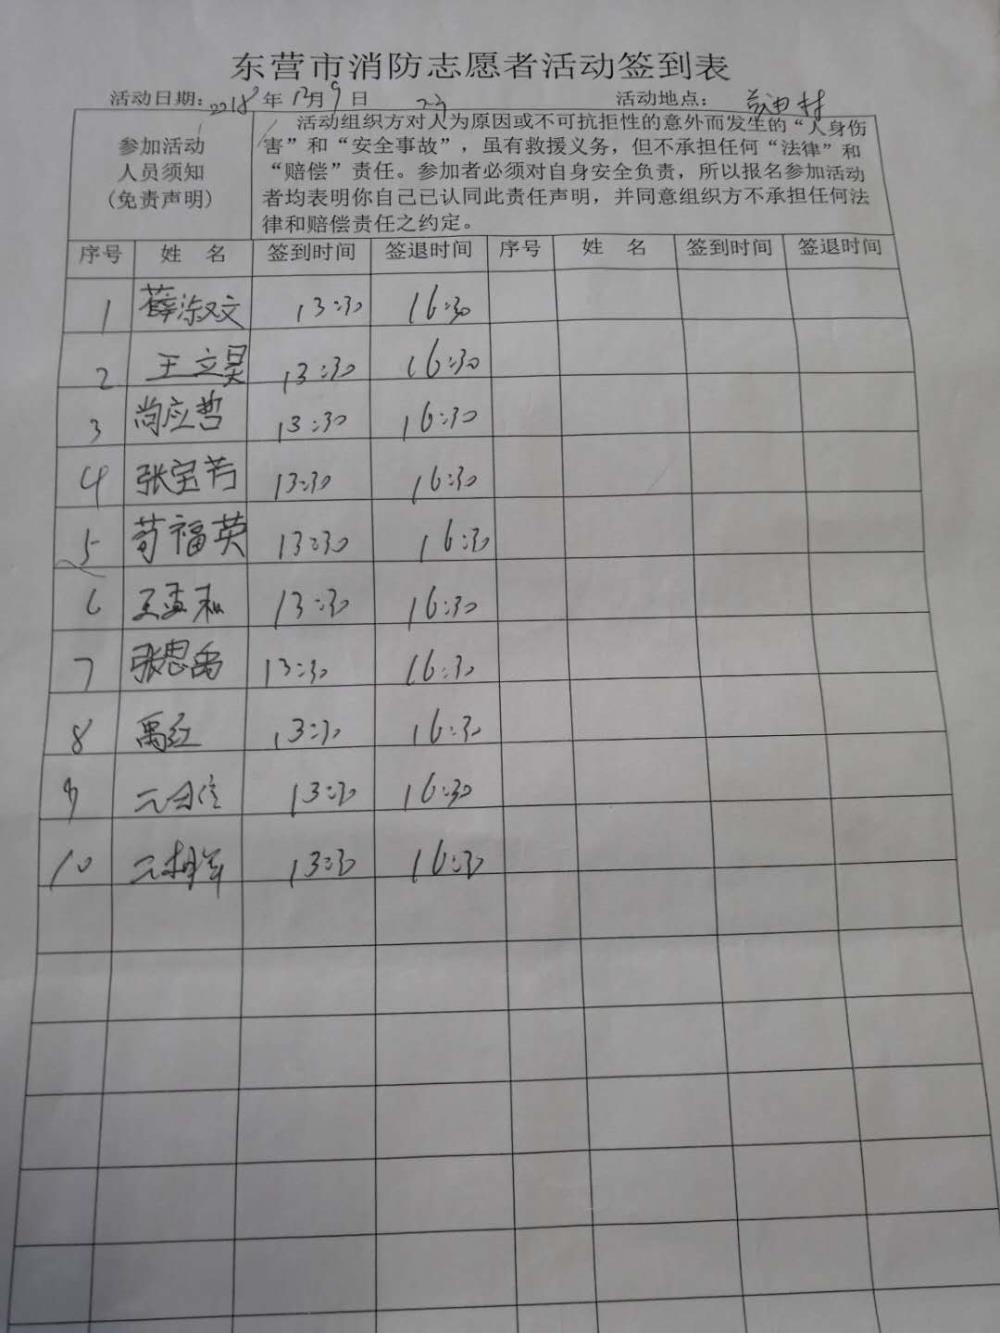 东营市消防志愿者活动签到表
活动日期: 2018年12月9日 活动地点: 村
参加活动
人员须知
(免责声明)
活动组织方对人为原因或不可抗拒性的意外而发生的“人身伤
害”和“安全事故”，虽有救援义务，但不承担任何“法律”和
“赔偿”责任。参加者必须对自身安全负责，所以报名参加活动
者均表明你自己已认同此责任声明，并同意组织方不承担任何法
律和赔偿责任之约定。
序号 姓 名 签到时间 签退时间 序号 姓 名 签到时间 签退时间
1 薛淑文 13:30 16:30
2 王立昊 13:30 16:30
3 尚应哲 13:30 16:30
4 张宝芳 13:30 16:30
5 苟福英 13:30 16:30
6 王孟和 13:30 16:30
7 张思禹 13:30 16:30
8 禹红 13:30 16:30
9 13:30 16:30
10 13:30 16:30